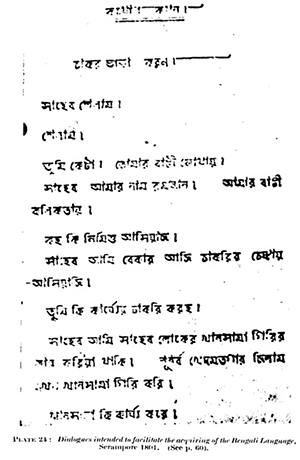 কথোপকথন।
চাকর ভাড়া করন।
সাহেব শেলাম।
শেলাম।
তুমি কেটা। তোমার বাটী কোথায়।
সাহেব আমার নাম রমজান। আমার বাটী
কলিকাতায়।
কহ কি নিমিত্ত আসিয়াছ।
সাহেব আমি বেকার আছি চাকরির চেষ্টায়
আসিয়াছি।
তুমি কি কার্য্যের চাকরি করহ।
সাহেব আমি সাহেব লোকের খানসামা গিরির
কায করিয়া থাকি। পূর্ব্ব খেদমতগার ছিলাম
এখন খানসামা গিরি করি।
খানসামা কি কার্য্য করে।
PLATE 24: Dialogues intended to facilitate the acquiring of the Bengali Language,
Serampore 1801. (See p. 60).